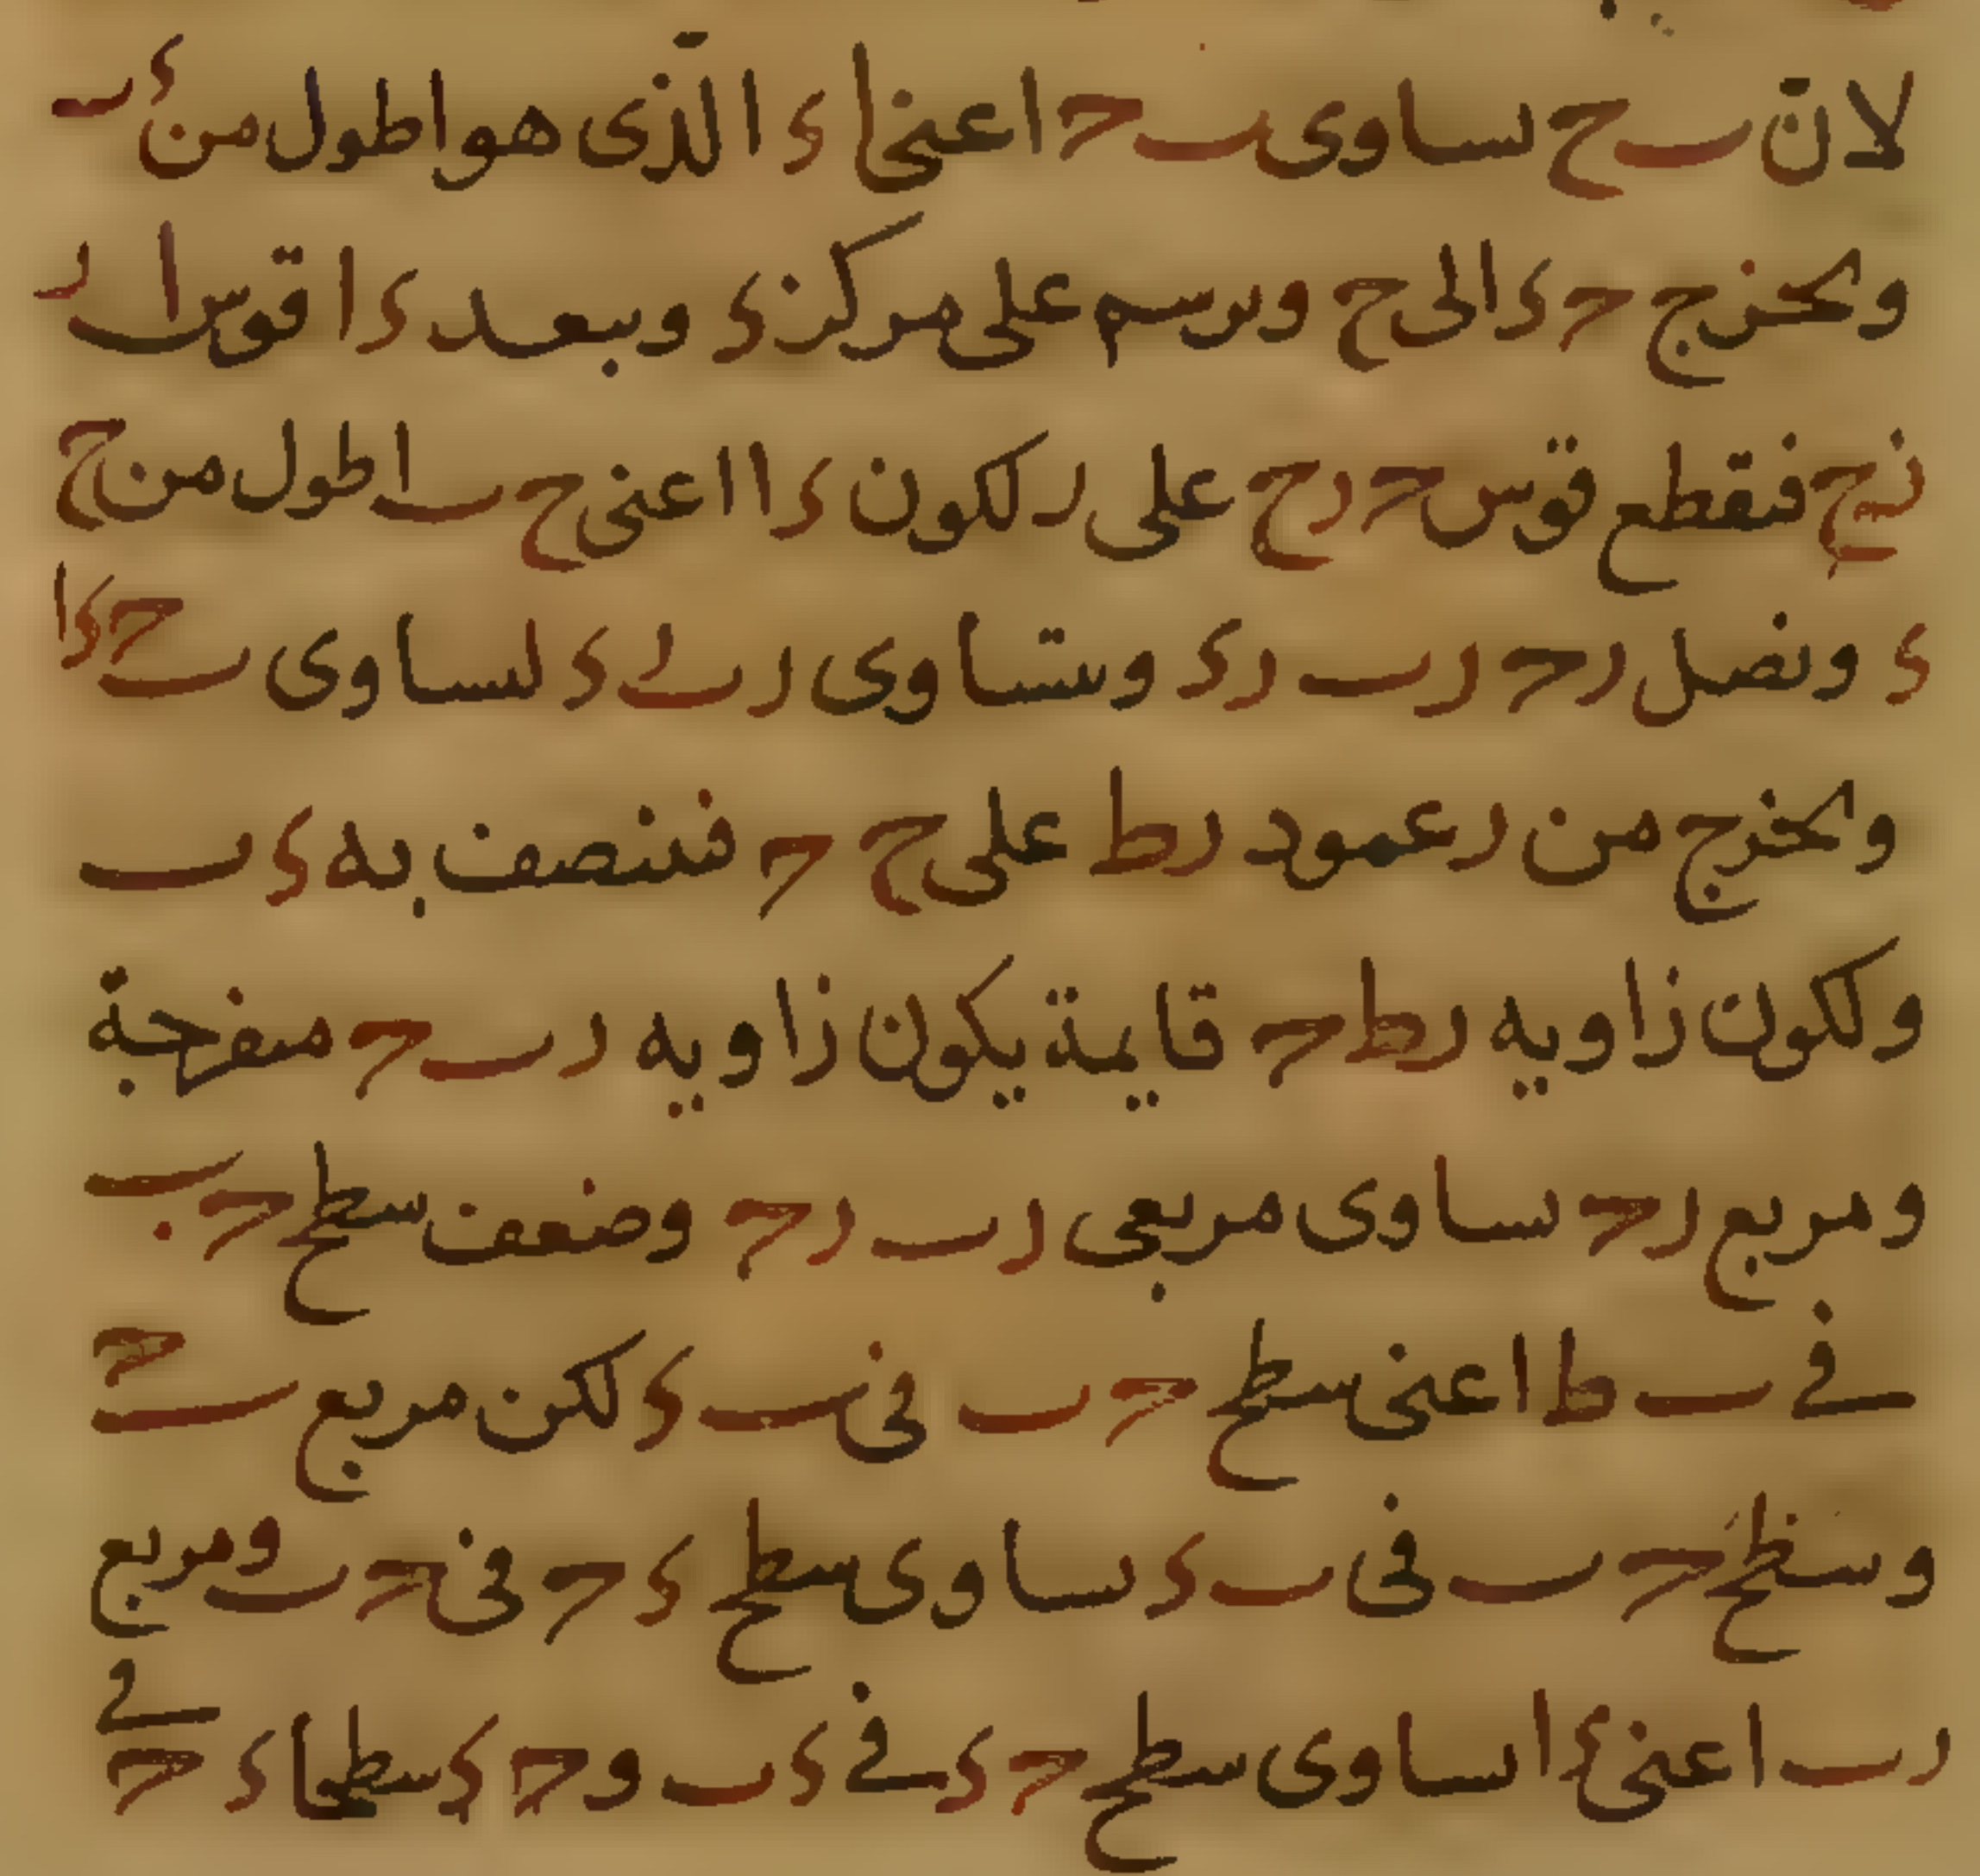 لان ب ح ساوى ب ح اعنى ا ء ا الذى هو اطول من ء ب
ويخرج ح ء الى ح ونرسم على مركز ء وببعد ء ا قوس ا ر
ز ح فتقطع قوس ح ر ح على ر لكون ء ا اعنى ح ب اطول من ح
ء ونصل ر ح ر ب ر ء وتساوى ر ب ر ء لساوى ب ح ء ا
ويخرج من ر عمود ر ط على ح ح فننصف به ء ب
ولكون زاويه ر ط ح قايمة يكون زاويه ر ب ح منفرجة
ومربع ر ح ساوى مربعى ر ب ر ح وضعف سطح ح ب
فى ب ط اعنى سطح ح ب فى ب ء لكن مربع ب ح
وسطح ح ب فى ب ء ساوى سطح ء ح فى ح ب ومربع
ر ب اعنى ء ا ساوى سطح ح ء فى ء ب و ح ء سطحا ء ح فى